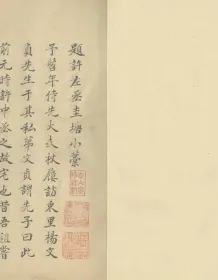 題許左丞圭塘小藁
予髫年侍先大夫杖屨訪東里楊文
貞先生于其私第文貞謂先子曰此
前元時許中丞之故宅也昔吾祖嘗